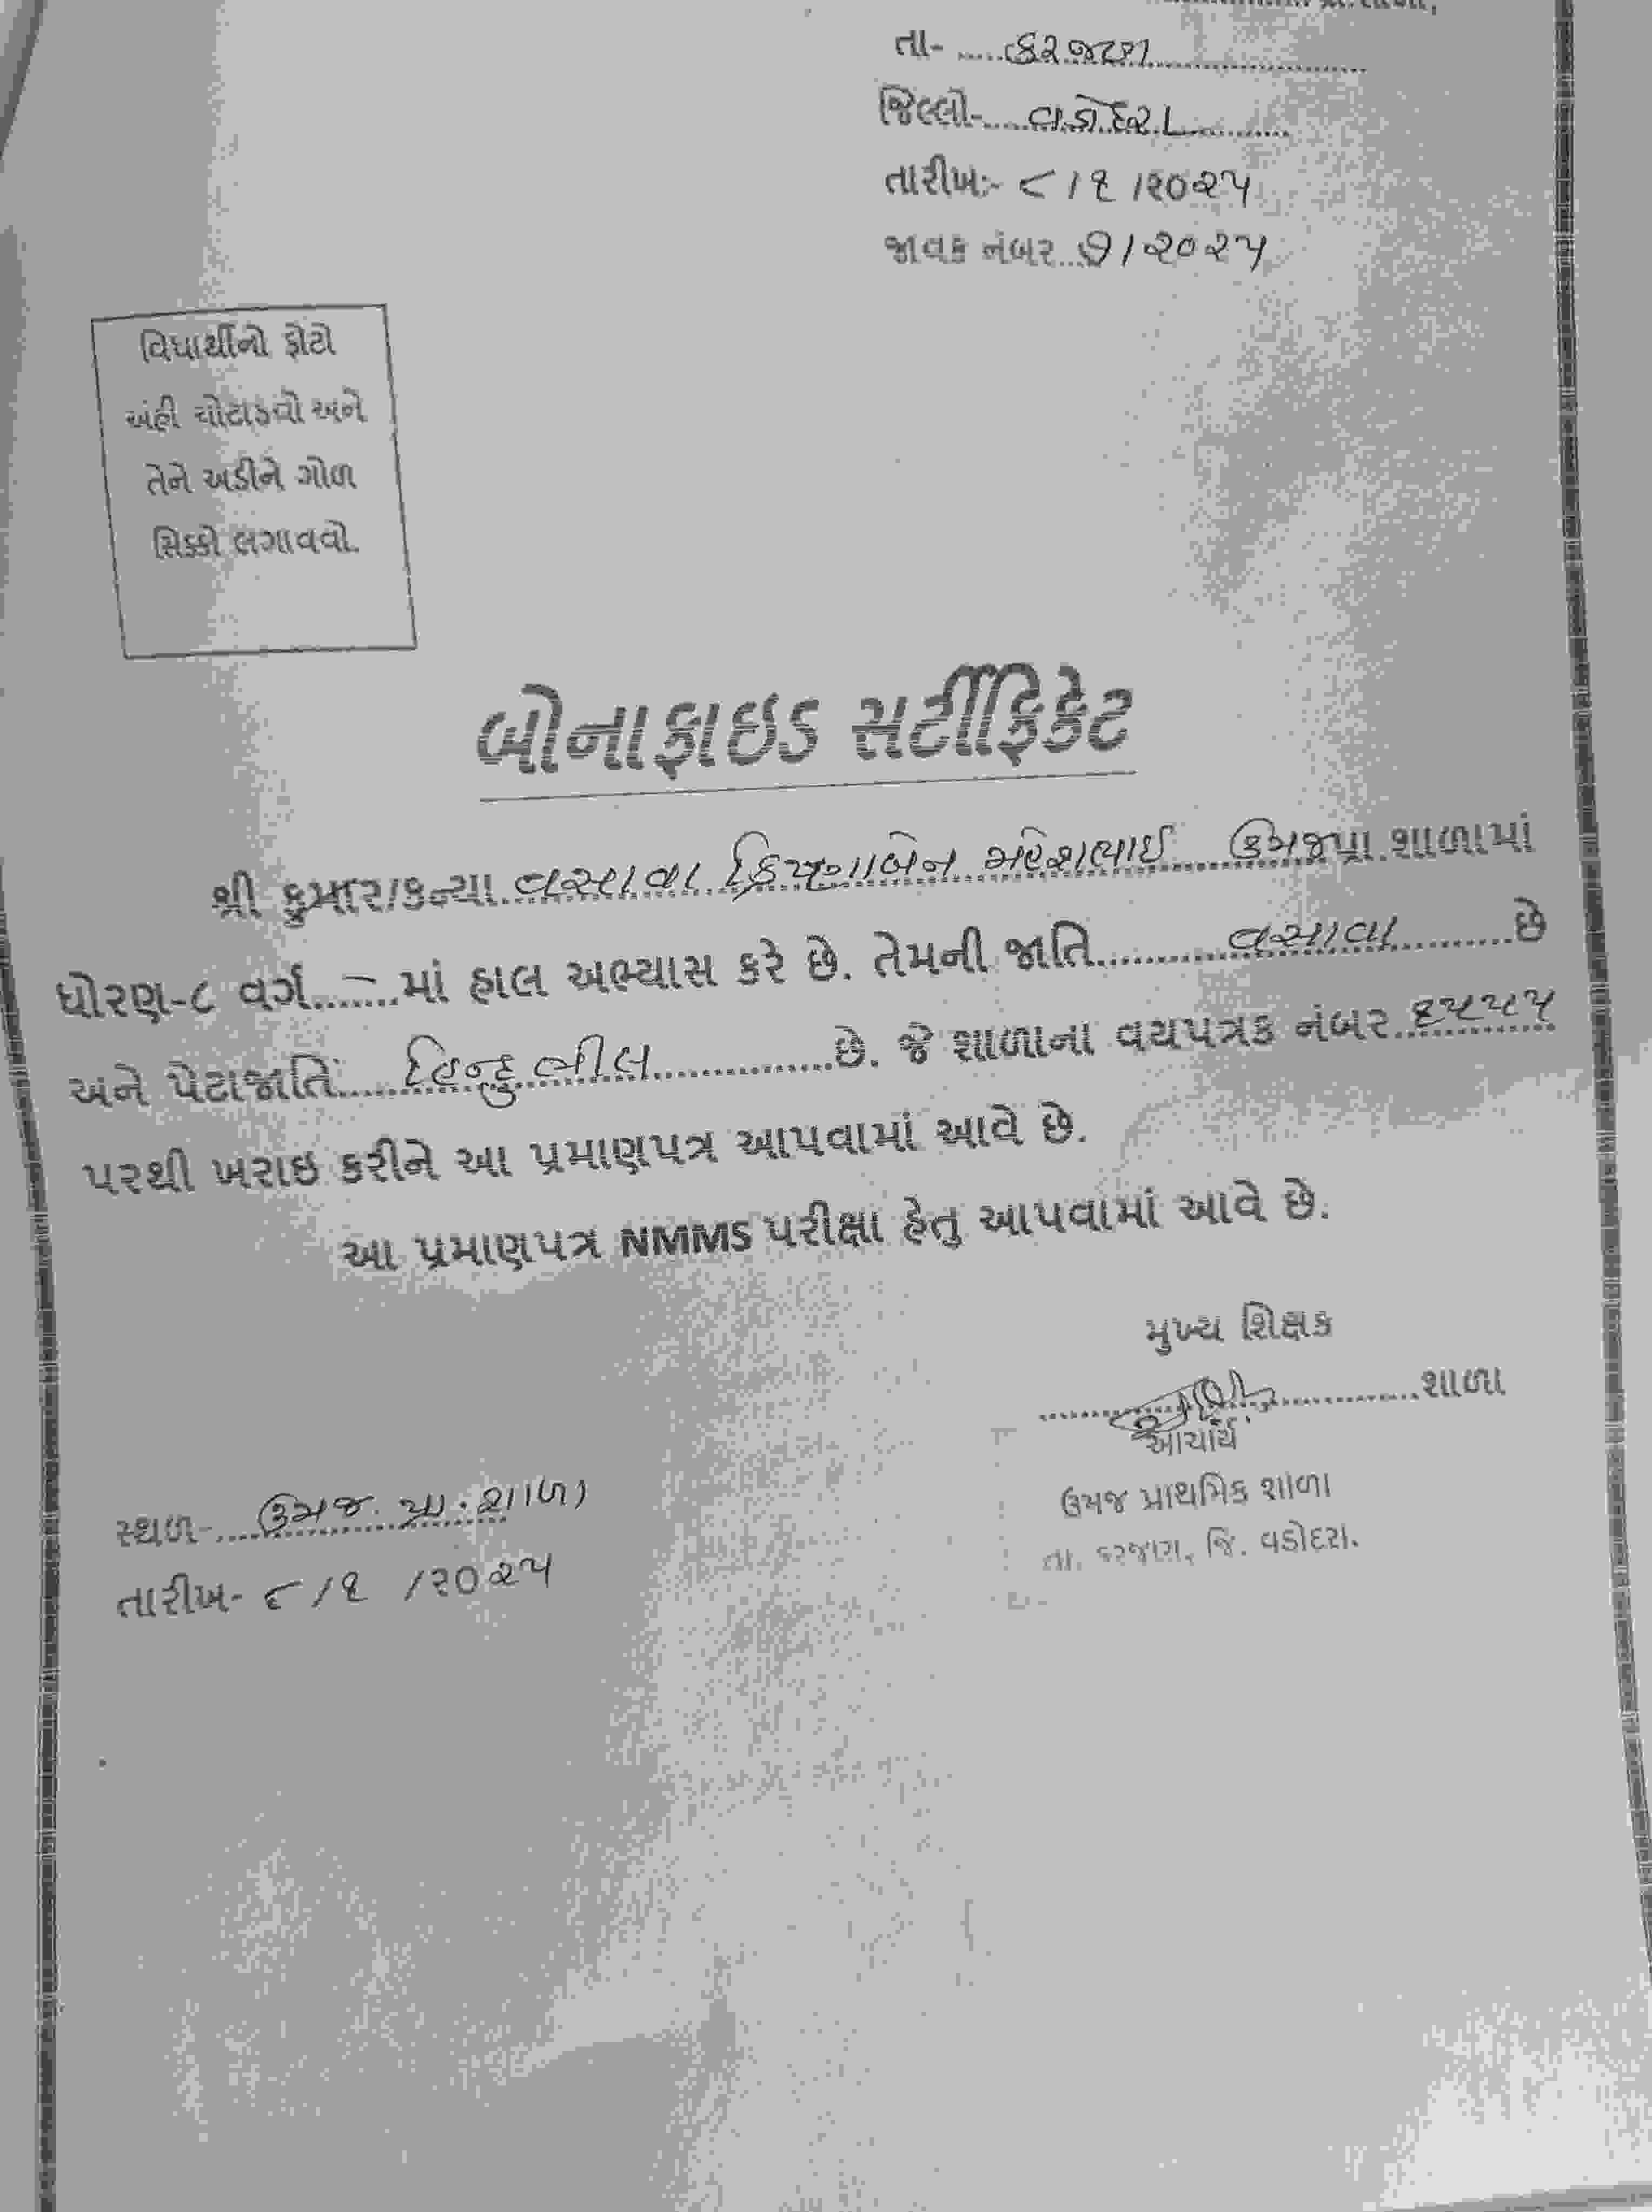 તા- કરજણ
જિલ્લો- વડોદરા
તારીખ:- ૮/૧/૨૦૨૫
જાવક નંબર ૭/૨૦૨૫
વિદ્યાર્થીનો ફોટો
અંહી ચોટાડવો અને
તેને અડીને ગોળ
સિક્કો લગાવવો.
બોનાફાઇડ સર્ટીફિકેટ
શ્રી કુમાર/કન્યા વસાવા ક્રિષ્નાબેન મહેશભાઈ ઉમજ પ્રા. શાળામાં
ધોરણ-૮ વર્ગ - માં હાલ અભ્યાસ કરે છે. તેમની જાતિ વસાવા છે
અને પેટાજાતિ હિન્દુ ભીલ છે. જે શાળાના વયપત્રક નંબર
પરથી ખરાઇ કરીને આ પ્રમાણપત્ર આપવામાં આવે છે.
આ પ્રમાણપત્ર NMMS પરીક્ષા હેતુ આપવામાં આવે છે.
મુખ્ય શિક્ષક
શાળા
આચાર્ય
ઉમજ પ્રાથમિક શાળા
તા. કરજણ, જિ. વડોદરા.
સ્થળ- ઉમજ પ્રા. શાળા
તારીખ- ૮/૧/૨૦૨૫